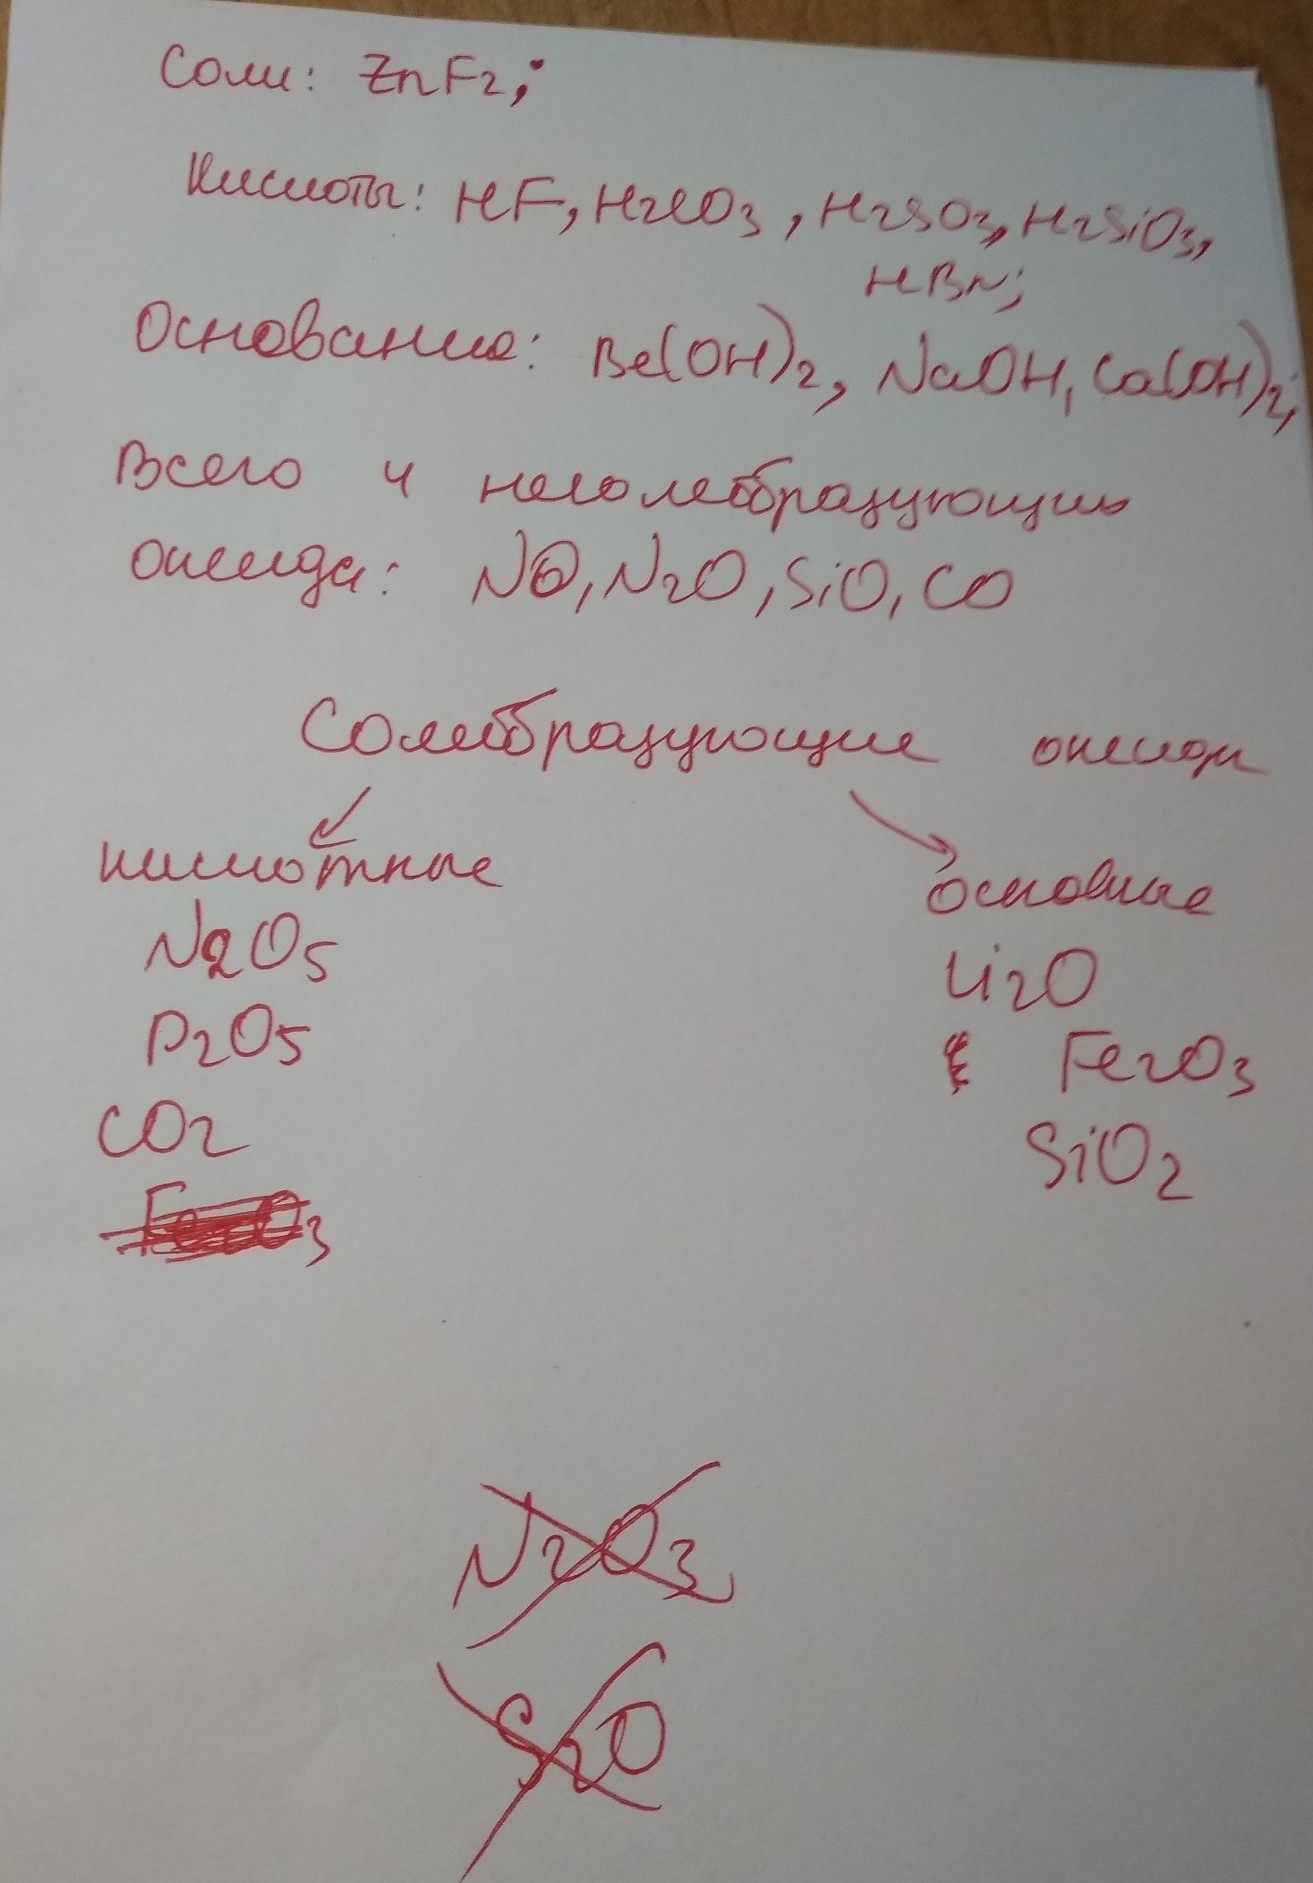 Соли: ZnF2;
Кислоты: HF, H2CO3, H2SO3, H2SiO3,
HBr;
Основание: Be(OH)2, NaOH, Ca(OH)2;
Всего 4 несолеобразующих
оксида: NO, N2O, SiO, CO
Солеобразующие оксиды
кислотные
основные
N2O5
Li2O
P2O5
Fe2O3
CO2
SiO2
Fe2O3
N2O3